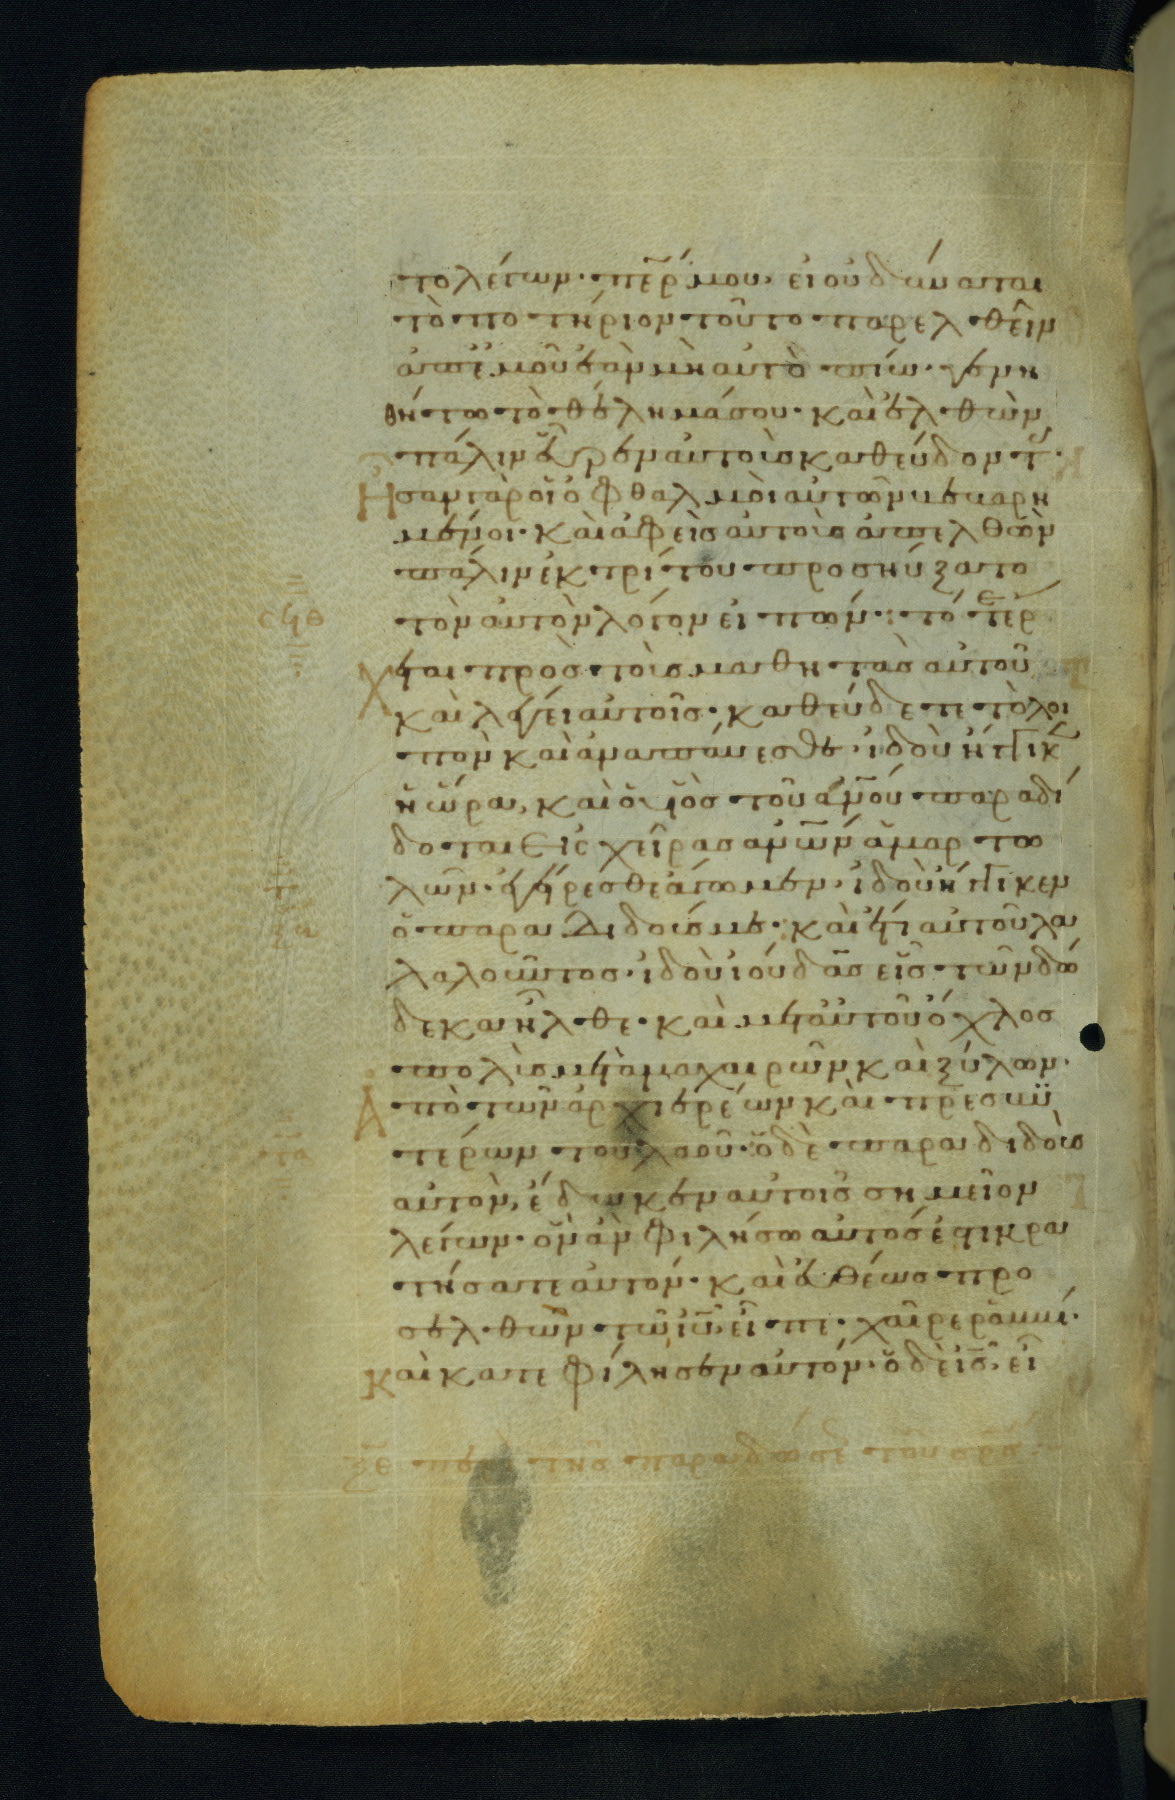 το λέγων· πε̅ρ μου, εἰ οὐ δύναται
τὸ ποτήριον τοῦτο παρελθεῖν
ἀπ' ἐμοῦ ἐὰν μὴ αὐτὸ πίω· γενη
θήτω τὸ θέλημά σου· καὶ ἐλθὼν
πάλιν εὗρεν αὐτοὺς καθεύδοντ·
Ἦσαν γὰρ οἱ ὀφθαλμοὶ αὐτῶν βεβαρη
μένοι· καὶ ἀφεὶς αὐτοὺς ἀπελθὼν
πάλιν ἐκ τρίτου προσηύξατο
τὸν αὐτὸν λόγον εἰπών· τό ἔρ
σϟθ
χεται πρὸς τοὺς μαθητὰς αὐτοῦ
καὶ λέγει αὐτοῖς· καθεύδετε τὸ λοι
πὸν καὶ ἀναπαύεσθε· ἰδοὺ ἤγγικ
ἡ ὥρα, καὶ ὁ υἱὸς τοῦ ἀν̅ου παραδί
δοται εἰς χεῖρας ἀν̅ων ἁμαρτω
λῶν· ἐγείρεσθε ἄγωμεν· ἰδοὺ ἤγγικεν
ὁ παραδιδούς με· καὶ ἔτι αὐτοῦ λα
λαλοῦντος· ἰδοὺ ἰούδας εἷς τῶν δώ
δεκα ἦλθε· καὶ μετ' αὐτοῦ ὄχλος
πολὺς μετὰ μαχαιρῶν καὶ ξύλων·
Ἀπὸ τῶν ἀρχιερέων καὶ πρεσβυ
τέρων τοῦ λαοῦ· ὁ δὲ παραδιδοὺς
αὐτὸν, ἔδωκεν αὐτοῖς σημεῖον
λέγων· ὃν ἂν φιλήσω αὐτός ἐστιν κρα
τήσατε αὐτόν· καὶ εὐθέως προ
σελθὼν τῷ ἰυ̅ εἶπε· χαῖρε ῥαββί·
Καὶ κατεφίλησεν αὐτόν· ὁ δὲ ἰς̅, εἶ
ξθ περὶ τῆς παραδώσε τοῦ